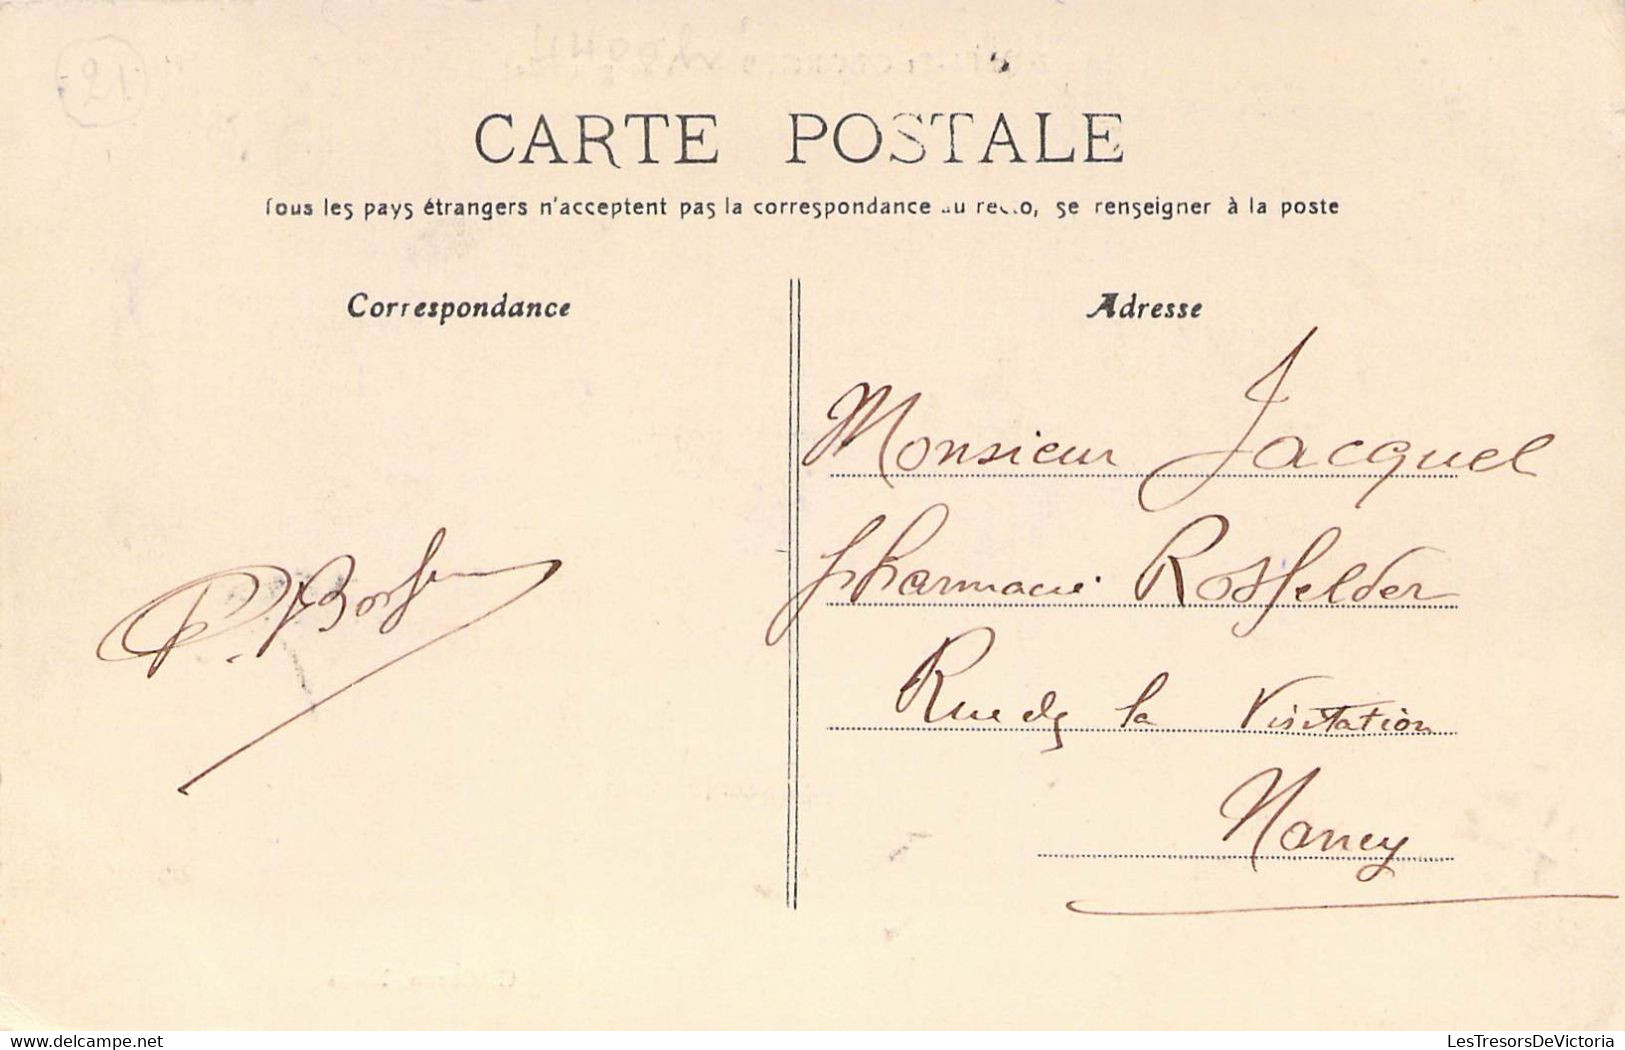 21
CARTE POSTALE
Tous les pays étrangers n'acceptent pas la correspondance au recto, se renseigner à la poste
Correspondance
Adresse
Monsieur Jacquel
Pharmacie Rosfelder
Rue de la Visitation
Nancy
www.delcampe.net
LesTresorsDeVictoria